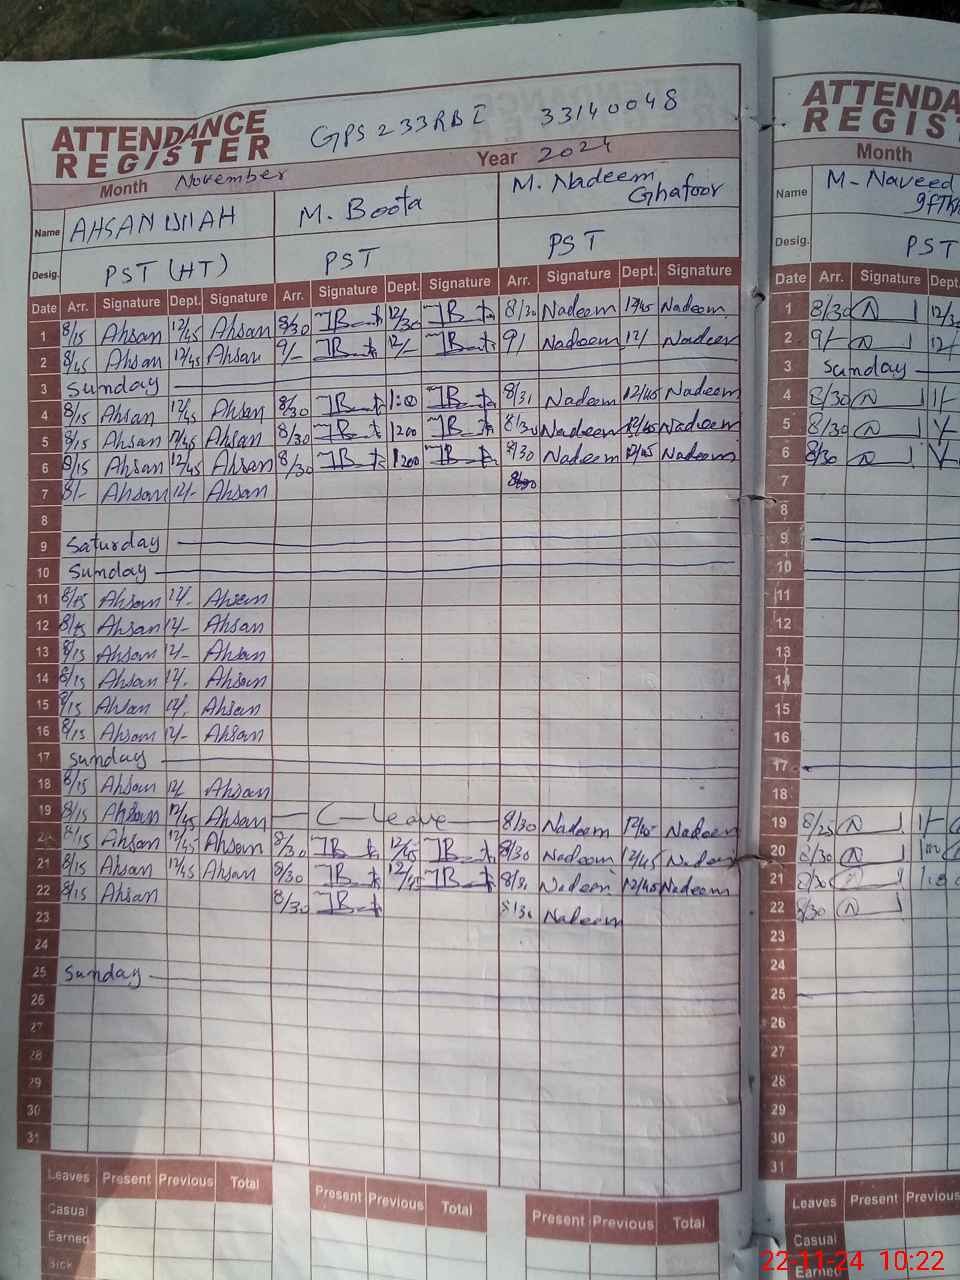 ATTENDANCE
REGISTER
GPS 233RBI 33140048
Month November Year 2024
Name AHSAN Ullah M. Boota M. Nadeem Ghafoor
Desig. PST (HT) PST PST
Date Arr. Signature Dept. Signature Arr. Signature Dept. Signature Arr. Signature Dept. Signature
1 8/15 Ahsan 12/45 Ahsan 8/30 12/30 8/30 Nadeem 12/45 Nadeem
2 8/45 Ahsan 12/45 Ahsan 9/- 12/- 9/ Nadeem 12/ Nadeem
3 Sunday
4 8/15 Ahsan 12/45 Ahsan 8/30 1:00 8/31 Nadeem 12/45 Nadeem
5 8/15 Ahsan 12/45 Ahsan 8/30 1200 8/30 Nadeem 12/45 Nadeem
6 8/15 Ahsan 12/45 Ahsan 8/30 1200 8/30 Nadeem 12/45 Nadeem
7 8/- Ahsan 12/- Ahsan
8
9 Saturday
10 Sunday
11 8/15 Ahsan 12/- Ahsan
12 8/15 Ahsan 12/- Ahsan
13 8/15 Ahsan 12/- Ahsan
14 8/15 Ahsan 12/- Ahsan
15 8/15 Ahsan 12/- Ahsan
16 8/15 Ahsan 12/- Ahsan
17 Sunday
18 8/15 Ahsan 12/ Ahsan
19 8/15 Ahsan 12/45 Ahsan C-Leave 8/30 Nadeem 12/45 Nadeem
20 8/15 Ahsan 12/45 Ahsan 8/30 12/45 8/30 Nadeem 12/45 Nadeem
21 8/15 Ahsan 12/45 Ahsan 8/30 12/45 8/31 Nadeem 12/45 Nadeem
22 8/15 Ahsan 8/30 8/30 Nadeem
23
24
25 Sunday
26
27
28
29
30
31
Leaves Present Previous Total Present Previous Total Present Previous Total
Casual
Earned
Sick
ATTENDA
REGIST
Month
Name M-Naveed
Desig. PST
Date Arr. Signature Dept
1 8/30 12/30
2 9/- 12/
3 Sunday
4 8/30 1/-
5 8/30
6 8/30
7
8
9
10
11
12
13
14
15
16
17
18
19 8/25 1/-
20 8/30
21 8/30
22 8/30
23
24
25
26
27
28
29
30
31
Leaves Present Previous
Casual
Earned
22-11-24 10:22